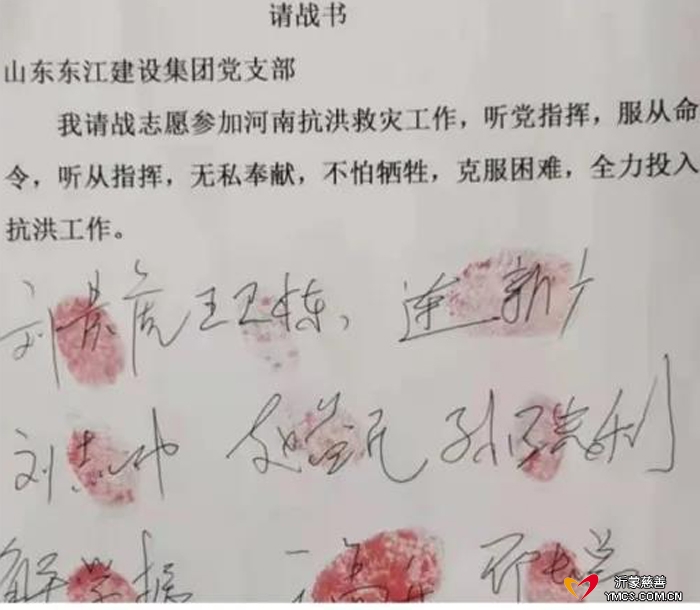 请战书
山东东江建设集团党支部
我请战志愿参加河南抗洪救灾工作，听党指挥，服从命
令，听从指挥，无私奉献，不怕牺牲，克服困难，全力投入
抗洪工作。
王卫栋、 连新广
刘志
沂蒙慈善
YMCS.COM.CN